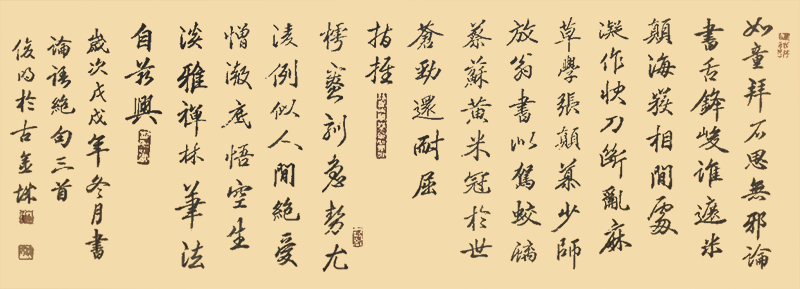 如童拜石思無邪論
書舌鋒峻誰遮米
顛海嶽相間處
凝作快刀斷亂麻
草學張顛慕少師
放翁書以駕蛟螭
蔡蘇黃米冠於世
蒼勁還耐屈
指推
樗寮訓急勢尤
淩例似人間絕受
憎澈底悟空生
淡雅禪林筆法
自茲興
歲次戊戌年冬月書
論語絕句三首
俊明於古孟城